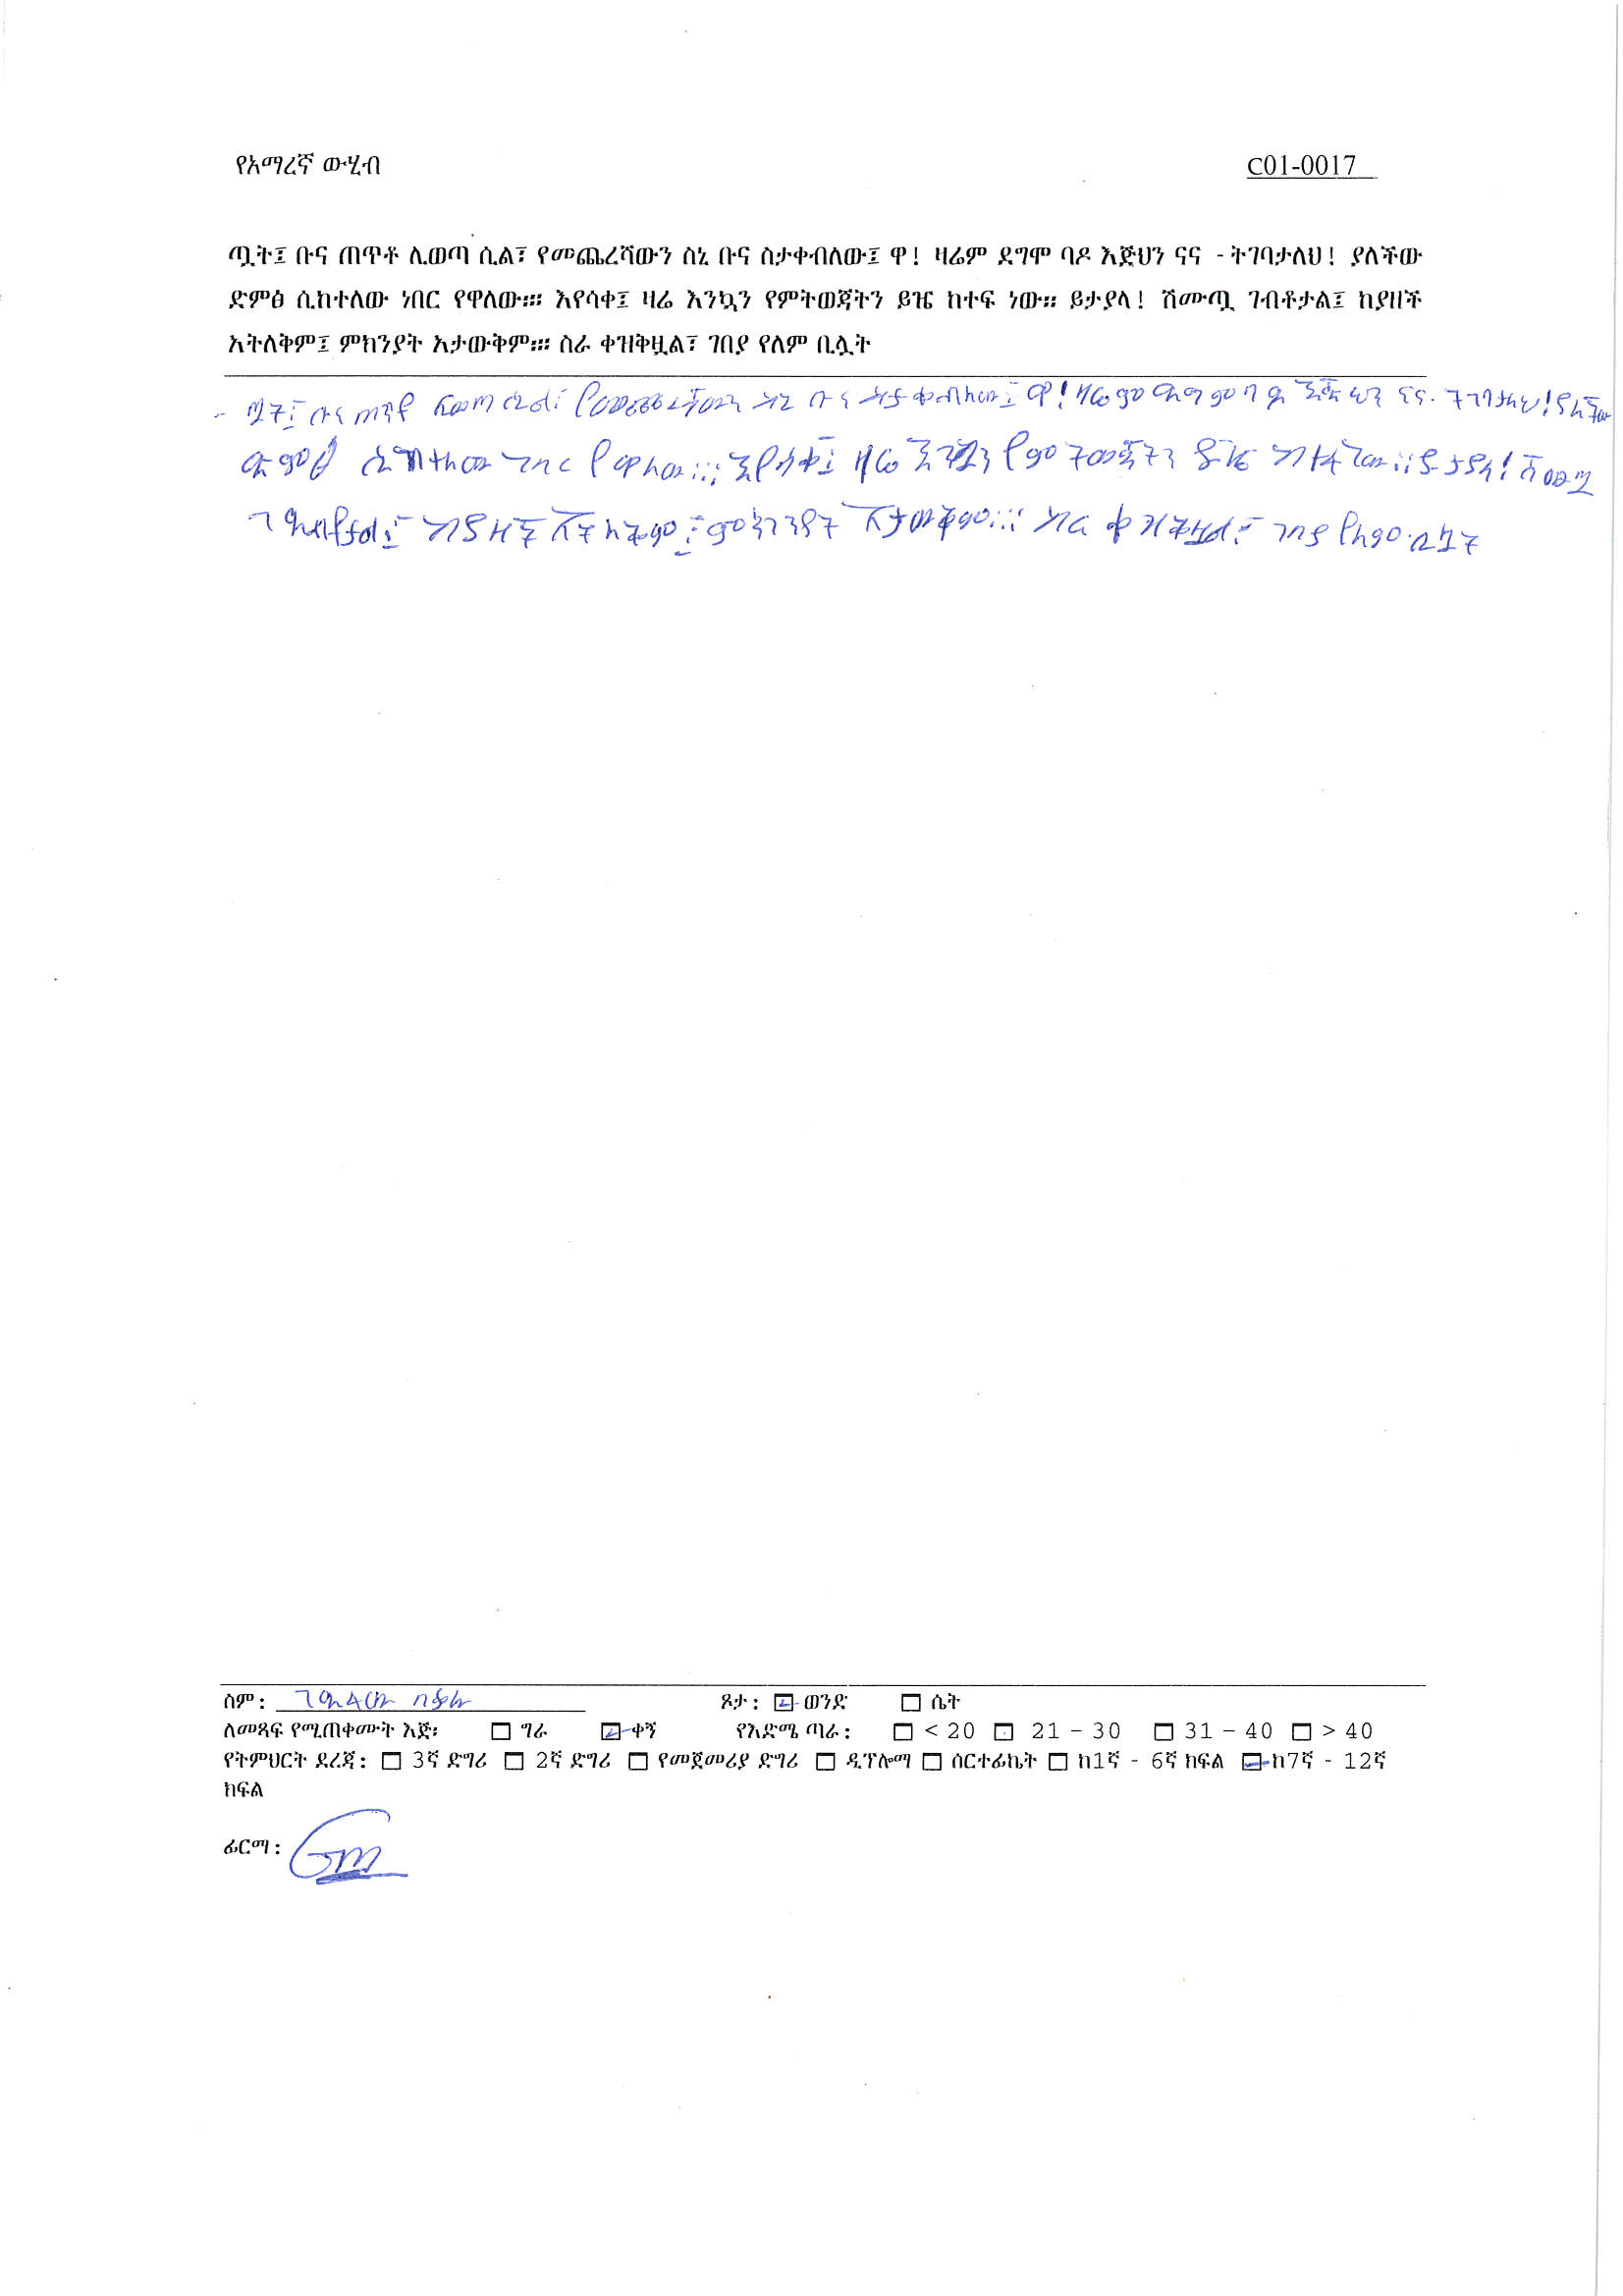 የአማረኛ ውሂብ C01-0017
ጧት፤ ቡና ጠጥቶ ሊወጣ ሲል፣ የመጨረሻውን ስኒ ቡና ስታቀብለው፤ ዋ! ዛሬም ደግሞ ባዶ እጅህን ናና - ትገባታለህ! ያለችው
ድምፅ ሲከተለው ነበር የዋለው።። እየሳቀ፤ ዛሬ እንኳን የምትወጃትን ይዤ ከተፍ ነው። ይታያላ! ሽሙጧ ገብቶታል፤ ከያዘች
አትለቅም፤ ምክንያት አታውቅም።። ስራ ቀዝቅዟል፣ ገበያ የለም ቢሏት
- ጧት፤ ቡና ጠጥቶ ሊወጣ ሲል፣ የመጨረሻውን ስኒ ቡና ስታቀብለው፤ ዋ! ዛሬም ደግሞ ባዶ እጅህን ናና - ትገባታለህ! ያለችው
ድምፅ ሲከተለው ነበር የዋለው።። እየሳቀ፤ ዛሬ እንኳን የምትወጃትን ይዤ ከተፍ ነው።። ይታያላ! ሽሙጧ
ገብቶታል፤ ከያዘች አትለቅም፤ ምክንያት አታውቅም።። ስራ ቀዝቅዟል፣ ገበያ የለም ቢሏት
ስም: ጾታ: ወንድ ሴት
ለመጻፍ የሚጠቀሙት እጅ፡ ግራ ቀኝ የእድሜ ጣራ: < 20 21 – 30 31 – 40 > 40
የትምህርት ደረጃ: 3ኛ ድግሪ 2ኛ ድግሪ የመጀመሪያ ድግሪ ዲፕሎማ ሰርተፊኬት ከ1ኛ - 6ኛ ክፍል ከ7ኛ - 12ኛ
ክፍል
ፊርማ: